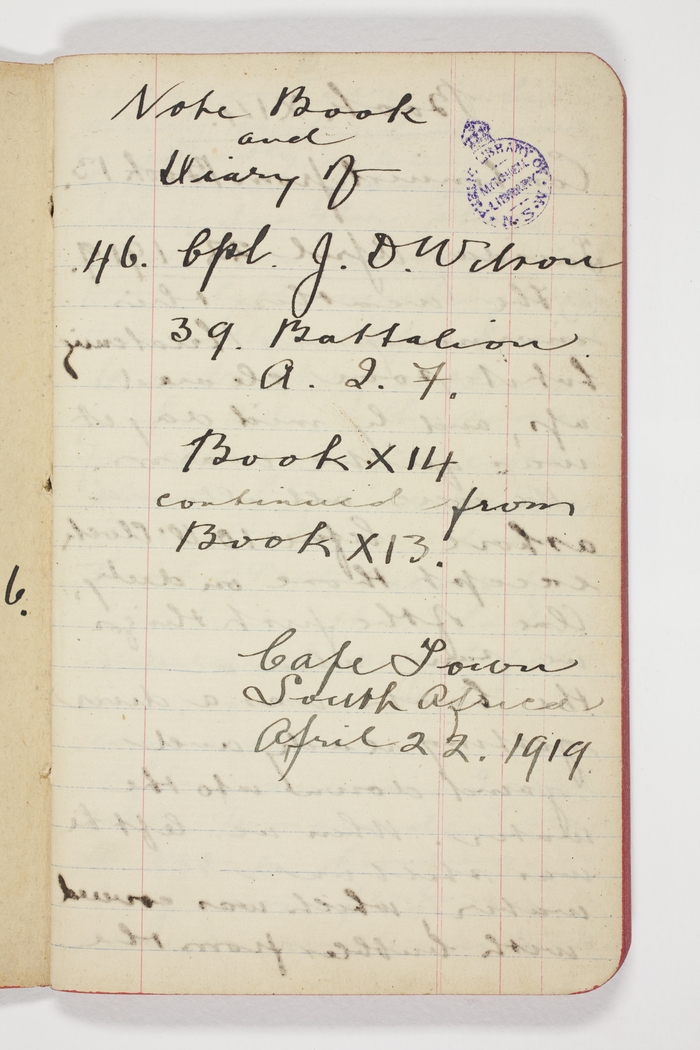 Note Book
and
Diary of
46. Cpl. J. D. Wilson
39. Battalion
A. I. F.
Book X14
continued from
Book X13.
Cape Town
South Africa
April 22. 1919.
6.
PUBLIC LIBRARY OF N.S.W.
MITCHELL
LIBRARY